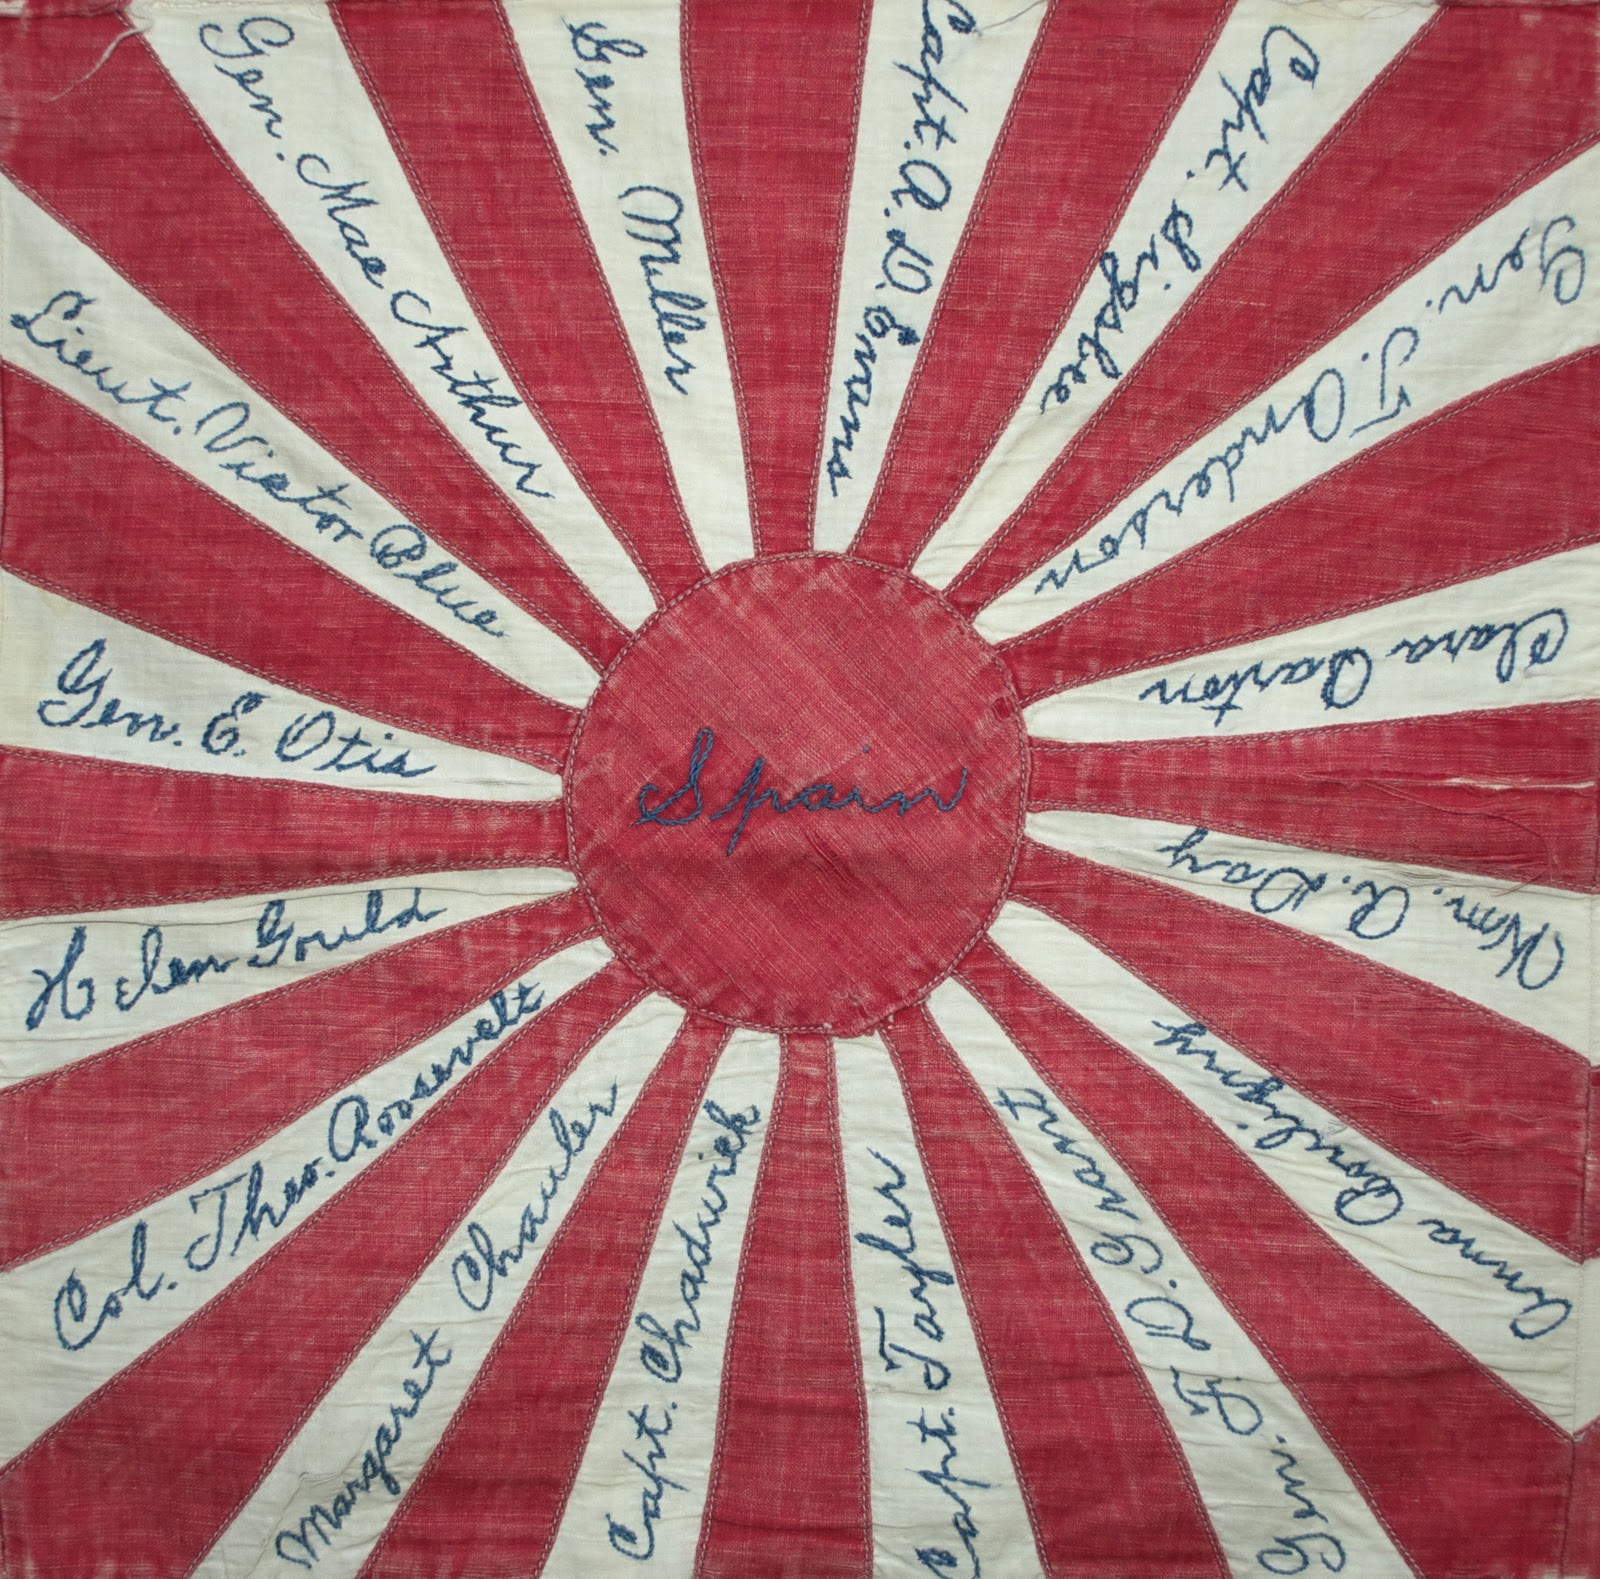 Spain
Gen. MacArthur
Gen. Miller
Capt. R. D. Evans
Capt. Sigsbee
Gen. T. Anderson
Clara Barton
Wm. R. Day
Anna Bouligny
Gen. F. D. Grant
Capt. Tayler
Capt. Chadwick
Margaret Chauler
Col. Theo. Roosevelt
Helen Gould
Gen. E. Otis
Lieut. Victor Blue